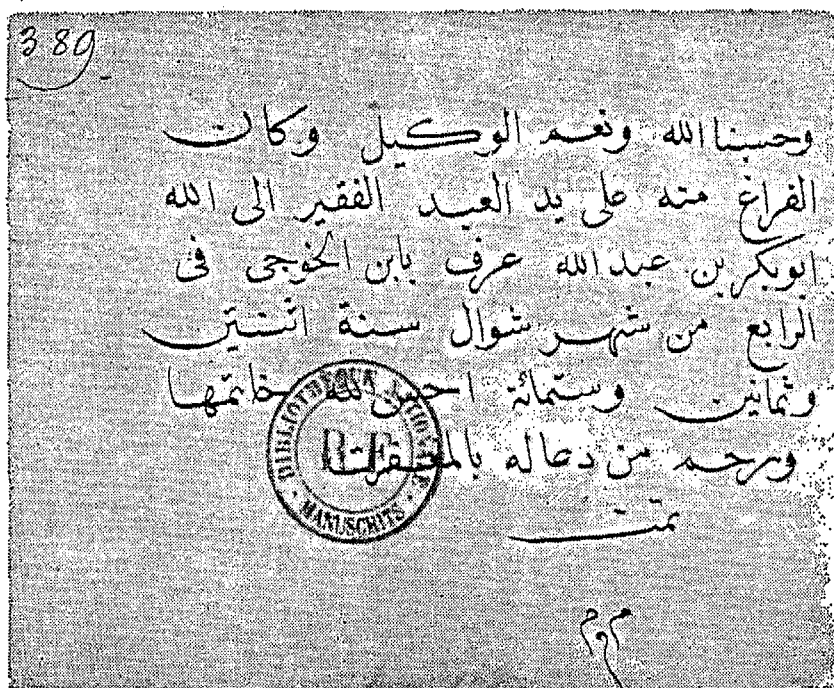 389
وحسبنا الله ونعم الوكيل وكان
الفراغ منه على يد العبد الفقير الى الله
ابوبكر بن عبد الله عرف بابن الخوجى فى
الرابع من شهر شوال سنة اثنتين
وثمانين وستمائة احسن الله خاتمها
ورحم من دعا له بالمغفرة
تمت
BIBLIOTHEQUE NATIONALE
R.F.
MANUSCRITS